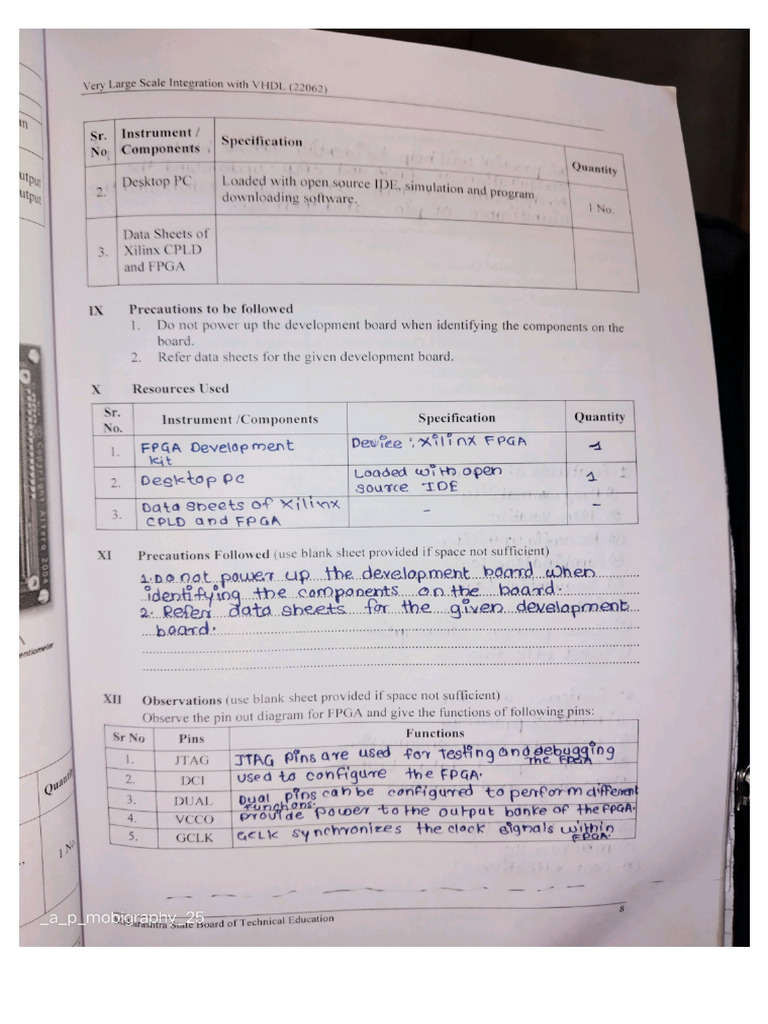 Very Large Scale Integration with VHDL (22062)
Sr. No Instrument / Components Specification Quantity
2. Desktop PC Loaded with open source IDE, simulation and program downloading software. 1 No.
3. Data Sheets of Xilinx CPLD and FPGA
IX Precautions to be followed
1. Do not power up the development board when identifying the components on the
board.
2. Refer data sheets for the given development board.
X Resources Used
Sr. No. Instrument /Components Specification Quantity
1. FPGA Development kit Device : Xilinx FPGA 1
2. Desktop PC Loaded with open source IDE 1
3. Data sheets of Xilinx CPLD and FPGA - -
XI Precautions Followed (use blank sheet provided if space not sufficient)
1. Do not power up the development board when
identifying the components on the board.
2. Refer data sheets for the given development
board.
XII Observations (use blank sheet provided if space not sufficient)
Observe the pin out diagram for FPGA and give the functions of following pins:
Sr No Pins Functions
1. JTAG JTAG pins are used for testing and debugging the FPGA
2. DCI used to configure the FPGA.
3. DUAL Dual pins can be configured to perform different functions.
4. VCCO provide power to the output banke of the FPGA.
5. GCLK GCLK synchronizes the clock signals within FPGA.
8
_a_p_mobigraphy_25
Maharashtra State Board of Technical Education
utput
utput
Copyright Altera 2004
entiometer
Quanti
1 No